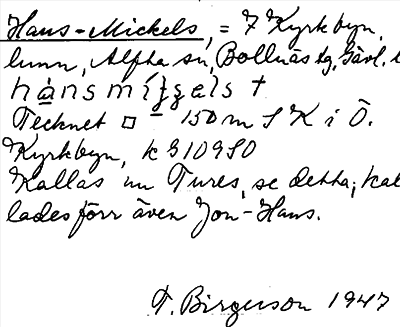 Hans-Mickels, = 7 Kyrkbyn,
lunn, Alfta sn, Bollnäs tg, Gävl. l
hánsmíʒʒels †
Tecknet □ - 150 m S K i Ö.
Kyrkbyn, k 310950
Kallas nu Tures, se detta; kal
lades förr även Jon-Hans.
T. Birgerson 1947